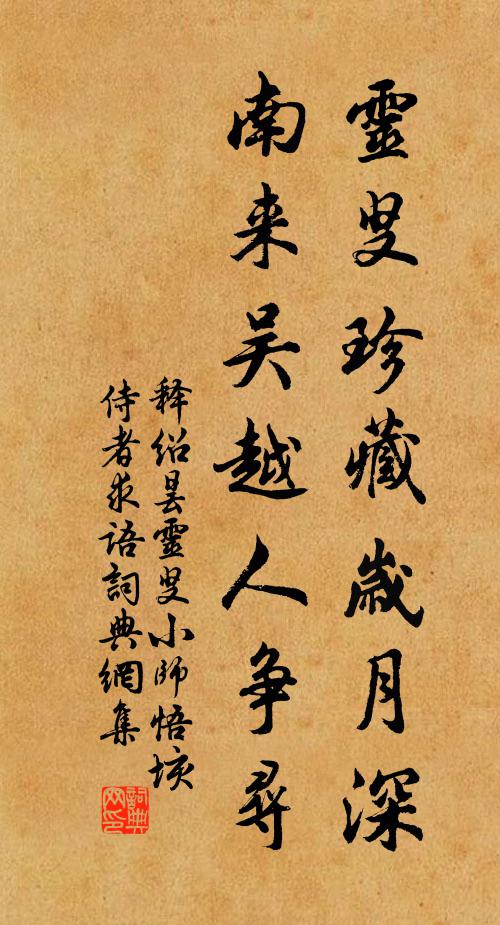 靈叟珍藏歲月深
南来吴越人争尋
释绍昙靈叟小師悟垓
侍者求语詞典網集
詞典网印